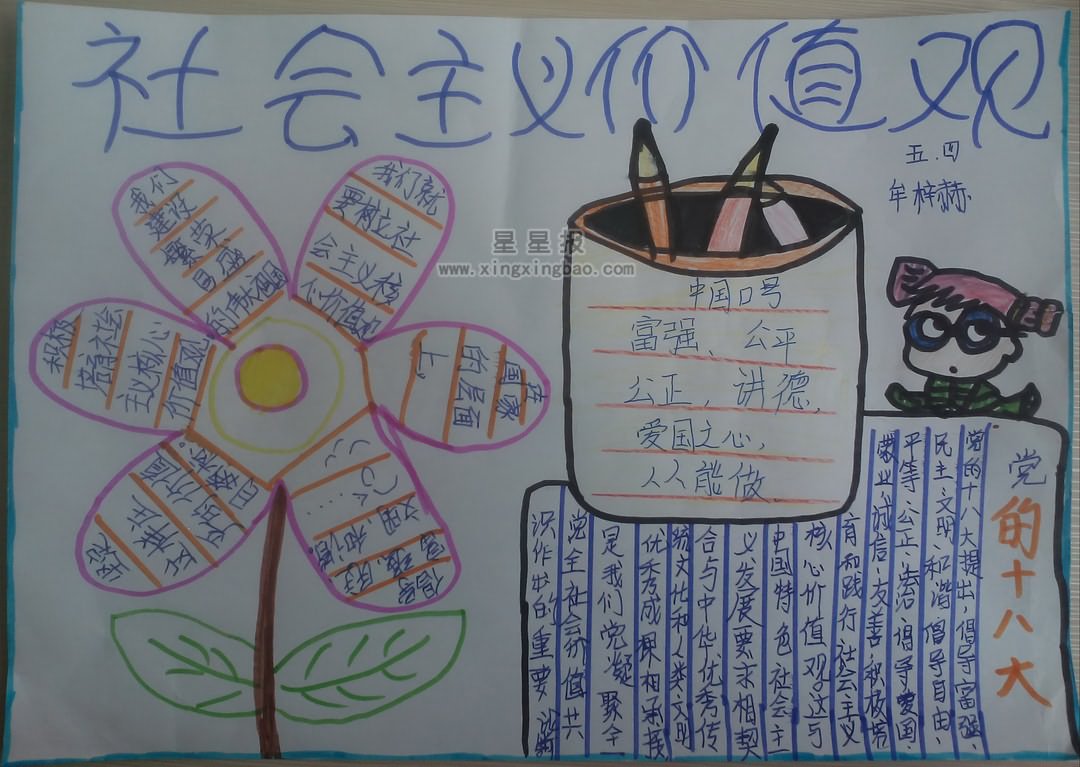 社会主义价值观
五.四
牟梓赫
星星报
www.xingxingbao.com
我们
建设
繁荣、
昌盛
的
我们就
要树立社
会主义核
心价值
积极
培育社会
主义核心
价值观
国家
的层面
上。
富强、
文明、和谐
中国口号
富强、公平
公正,讲德,
爱国之心,
人人能做。
党的十八大
党的十八大提出,倡导富强、
民主、文明、和谐倡导自由、
平等、公正、法治、倡导爱国、
敬业、诚信、友善积极培
育和践行社会主义
核心价值观。这与
中国特色社会主
义发展要求相契
合与中华优秀传
统文化和人类文明
优秀成果相承接
是我们党凝聚全
党全社会价值共
识作出的重要